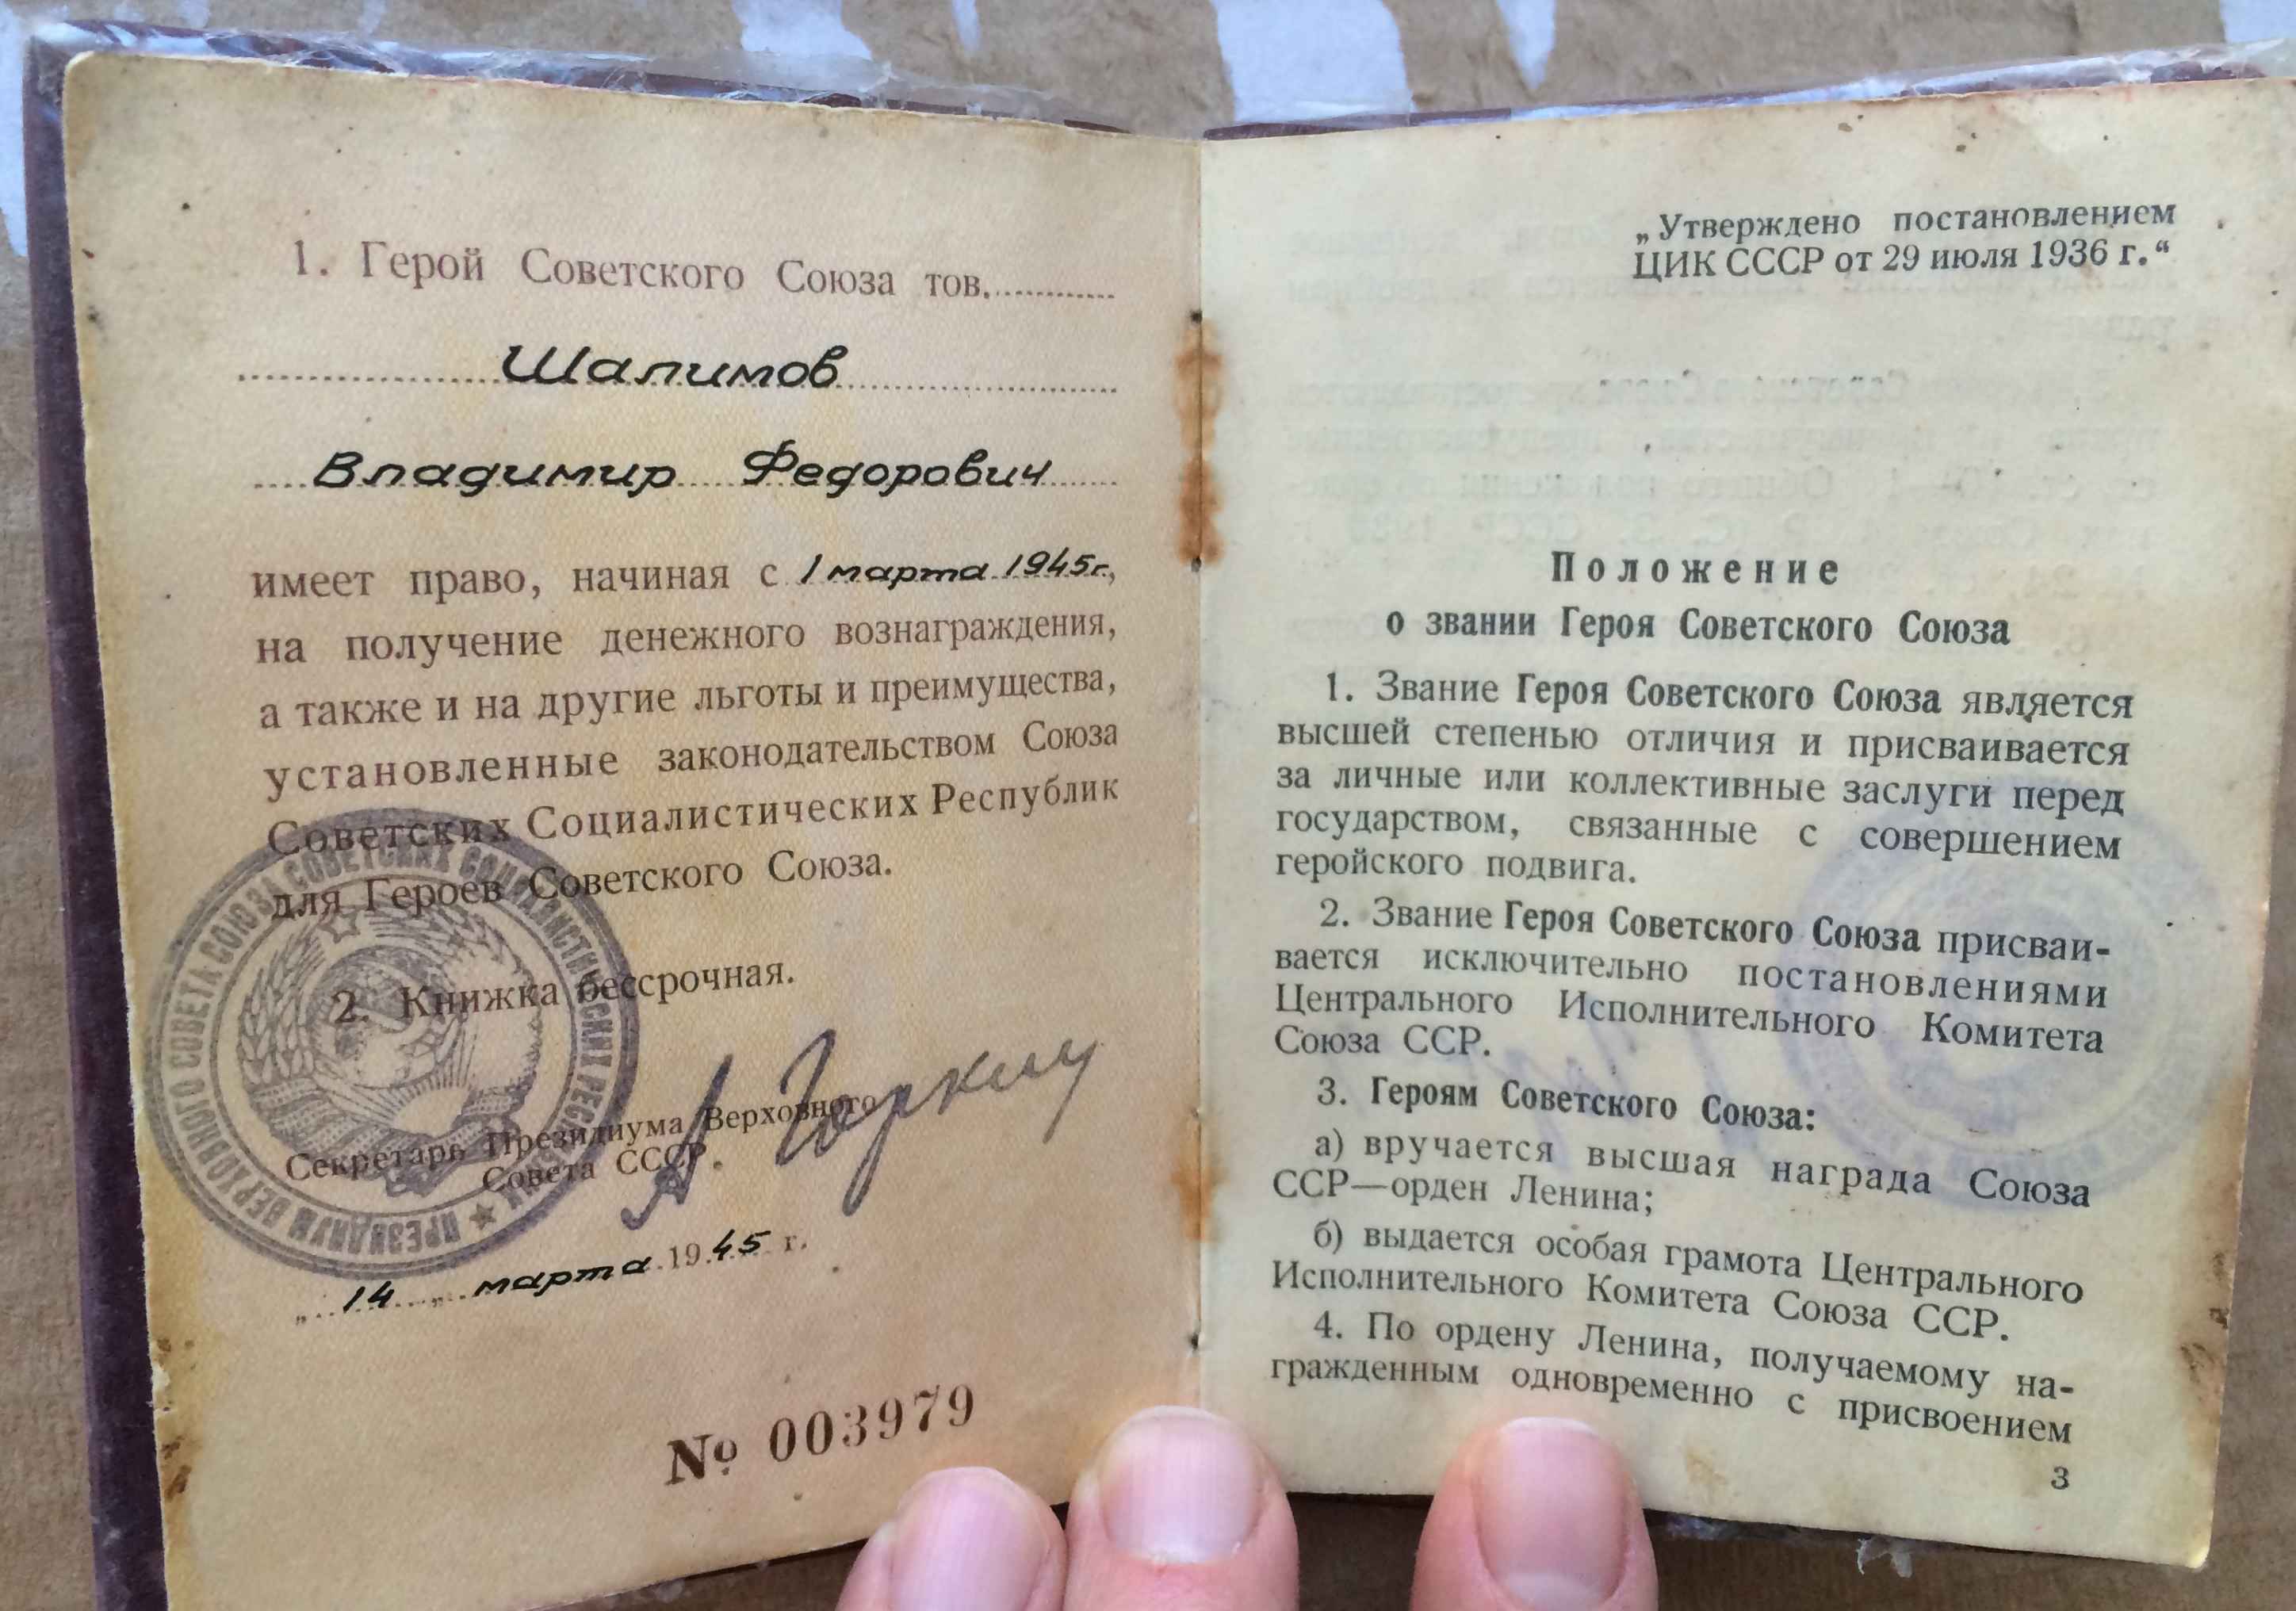 1. Герой Советского Союза тов.
Шалимов
Владимир Федорович
имеет право, начиная с 1 марта 1945г.,
на получение денежного вознаграждения,
а также и на другие льготы и преимущества,
установленные законодательством Союза
Советских Социалистических Республик
для Героев Советского Союза.
2. Книжка бессрочная.
Секретарь Президиума Верховного
Совета СССР.
А Горкин
„14„ марта 1945 г.
№ 003979
ПРЕЗИДИУМ ВЕРХОВНОГО СОВЕТА СОЮЗА СОВЕТСКИХ СОЦИАЛИСТИЧЕСКИХ РЕСПУБЛИК
„Утверждено постановлением
ЦИК СССР от 29 июля 1936 г.“
Положение
о звании Героя Советского Союза
1. Звание Героя Советского Союза является
высшей степенью отличия и присваивается
за личные или коллективные заслуги перед
государством, связанные с совершением
геройского подвига.
2. Звание Героя Советского Союза присваи-
вается исключительно постановлениями
Центрального Исполнительного Комитета
Союза ССР.
3. Героям Советского Союза:
а) вручается высшая награда Союза
ССР—орден Ленина;
б) выдается особая грамота Центрального
Исполнительного Комитета Союза ССР.
4. По ордену Ленина, получаемому на-
гражденным одновременно с присвоением
3